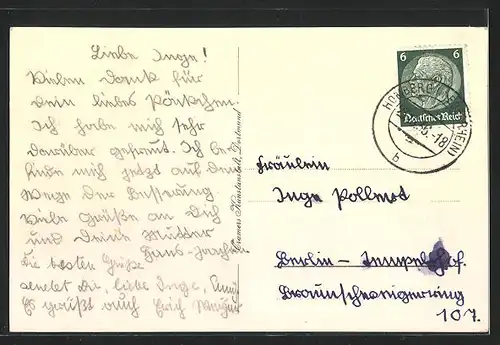 Liebe Inge!
Vielen Dank für
dein liebes Päckchen.
Ich habe mich sehr
darüber gefreut. Ich be-
finde mich jetzt auf dem
Wege der Besserung.
Viele Grüße an Dich
und Deine Mutter
Hans-Joachim
Die besten Grüße
sendet Dir, liebe Inge,
Es grüßt auch Erich
Cramers Kunstanstalt, Dortmund
6 6
Deutsches Reich
HOMBERG (RHEIN)
-18
b
Fräulein
Inge Pollert
Berlin-Tempelhof.
Braunschweigerring
107.